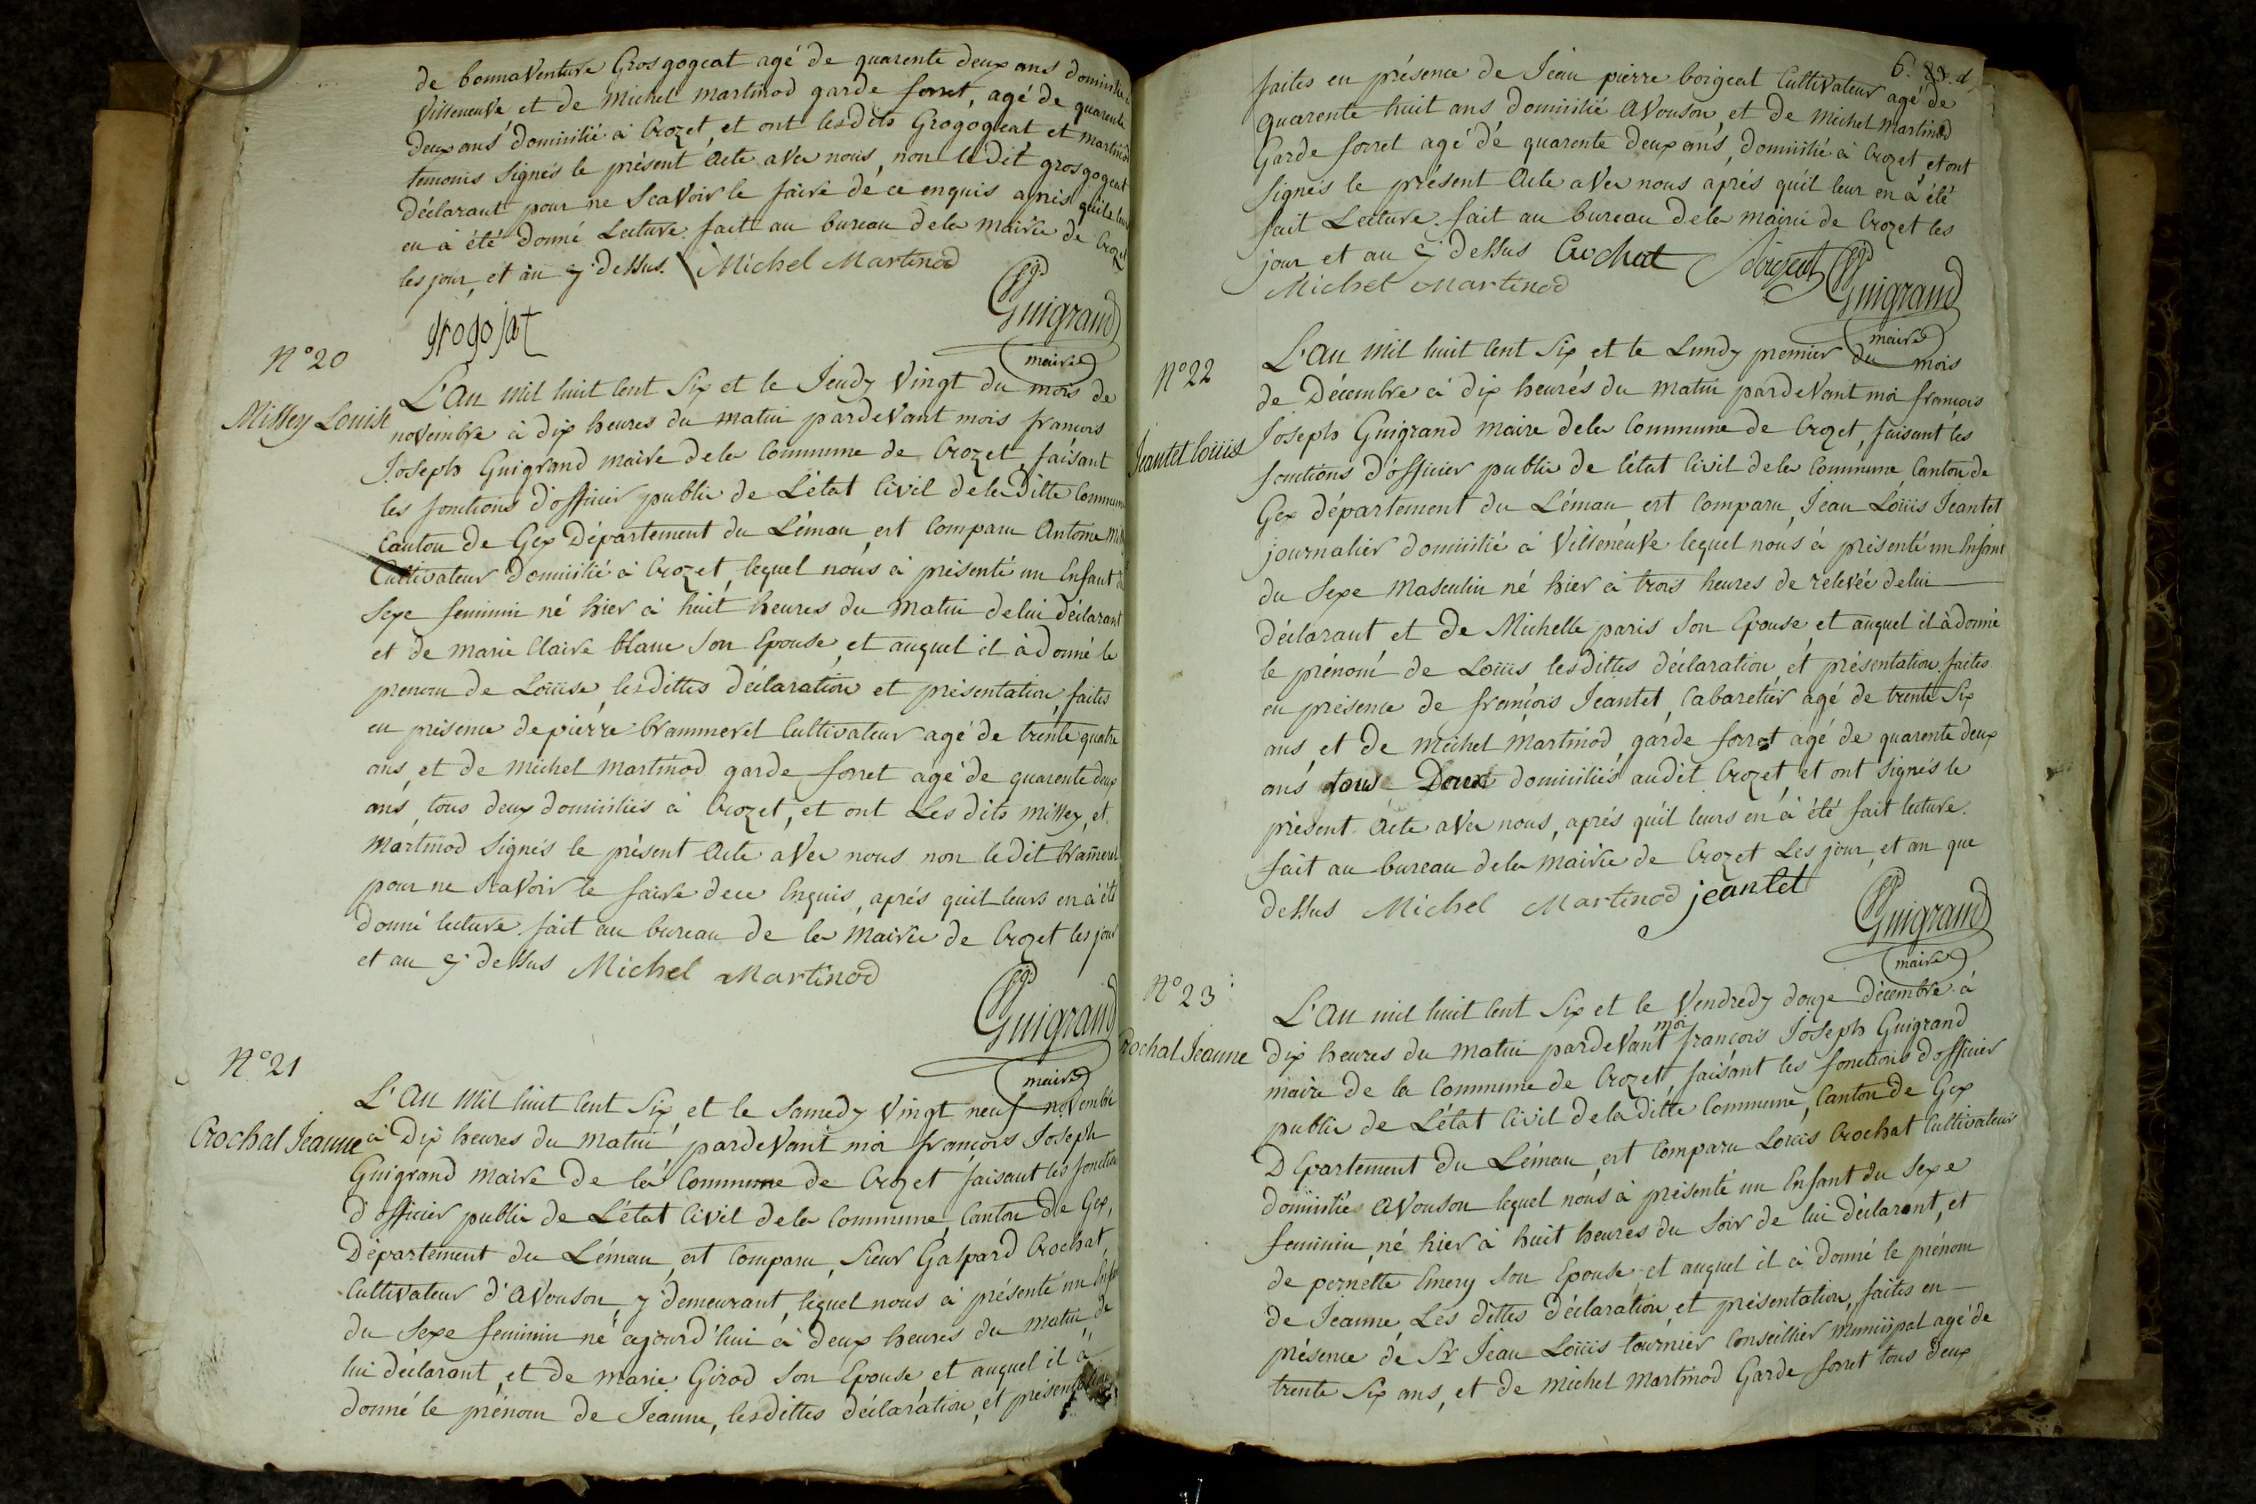 de bonnaventure Grosgogeat agé de quarente deux ans domicilié a
Villeneuve et de Michel Martinod garde forret, agé de quarente
deux ans domicilié à Crozet, et ont lesdits Grogogeat et martinod
temouis signés le présent Acte avec nous, non ledit grosgogeat
déclarant pour ne Scavoir le faire de ce enquis après quils leurs
en à été donné Lecture. fait au bureau dela Mairie de Crozet
les jour, et an y dessus. Michel Martinod
grogojat
Guigrand
maire
N° 20
Missey Louise
L'An mil huit Cent Six et le Jeudy Vingt du mois de
novembre à dix heures du matin pardevant mois francois
Joseph Guigrand maire dela Commune de Crozet faisant
les fonctions d'officier public de L'état Civil deladitte Commune
Canton de Gex Département du Léman est Comparu Antoine
Cultivateur domicilié à Crozet, lequel nous à présenté un Enfant du
Sexe feminin né hier à huit heures du Matin delui déclarant
et de marie Claire blanc son Epouse, et auquel il à donné le
prenom de Loüise, lesdittes déclaration et présentation, faites
en présence de pierre brammerel Cultivateur agé de trente quatre
ans, et de Michel Martinod garde forret agé de quarente deux
ans, tous deux domiciliés à Crozet, et ont Lesdits Missey, et
Martinod Signés le présent Acte avec nous non ledit bramerel
pour ne Scavoir le faire dece Enquis, aprés quil leurs en à été
donné lecture. fait au bureau de la Mairie de Crozet les jour
et an y dessus Michel Martinod
Guigrand
maire
N° 21
Crochat Jeanne
L'An Mil huit Cent Six, et le Samedy Vingt neuf novembre
à Dix heures du matin, pardevant moi françois Joseph
Guigrand maire de la Commune de Crozet faisant les fonctions
d'officier public de L'état Civil dela Commune, Canton de Gex,
Département du Léman, est Comparu, Sieur Gaspard Crochat
Cultivateur d'Avouson, y demeurant, lequel nous à présenté un Enfant
du Sexe feminin né ajourd'hui à deux heures du matin de
lui déclarant, et de marie Girod son Epouse, et auquel il à
donné le prénom de Jeanne, lesdittes déclaration, et présentation
6.
faites en présence de Jean pierre boigeat Cultivateur agé de
quarente huit ans domicilié Avouson, et de Michel Martinod
Garde forret agé dé quarente deux ans, domicilié à Crozet, et ont
Signés le présent Acte avec nous après quil leur en à été
fait Lecture. fait au bureau dela Mairie de Crozet les
jour et an y dessus Crochat boigeat
Michel Martinod
Guigrand
maire
N° 22
Jeantet loüis
L'An mil huit Cent Six et le Lundy premier du mois
de Décembre à dix heurés du matin pardevant moi françois
Joseph Guigrand Maire dela Commune de Crozet, faisant les
fonctions d'officier public de l'état Civil dela Commune Canton de
Gex département du Léman, est Comparu, Jean Loüis Jeantet
journalier domicilié à Villeneuve lequel nous à présenté un Enfant
du Sexe Masculin né hier à trois heures de relevée delui
déclarant et de Michelle paris son Epouse, et auquel il à donné
le prénom de Loüis, lesdittes déclaration, et présentation faites
en présence de françois Jeantet, Cabaretier agé de trente Six
ans, et de Michel Martinod, garde forret agé de quarente deux
ans tous Deux domiciliés audit Crozet, et ont signés le
présent Acte avec nous, aprés qu'il leurs en à été fait lecture.
fait au bureau dela Mairie de Crozet Les jour, et an que
dessus Michel Martinod jeantet
Guigrand
maire
N° 23
Crochat Jeanne
L'An mil huit Cent Six et le Vendredy douze Décembre à
moi
dix heures du Matin pardevant françois Joseph Guigrand
maire de la Commune de Crozet, faisant les fonctions d'officier
public de L'état Civil deladitte Commune, Canton de Gex
Département du Léman, est Comparu Loüis Crochat Cultivateur
domicilié Avouson lequel nous à présenté un Enfant du Sexe
feminin, né hier à huit heures du Soir de lui déclarant, et
de pernette Emery son Epouse et auquel il à donné le prénom
de Jeanne, Les dittes déclaration, et présentation, faites en
présence dé Sr Jean Loüis tournier Conseillier Municipal agé de
trente Six ans, et de Michel Martinod Garde forret tous deux